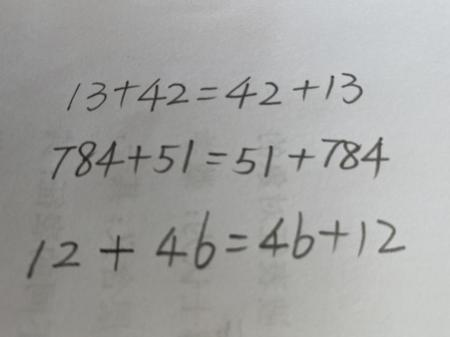 13+42=42+13
784+51=51+784
12+46=46+12